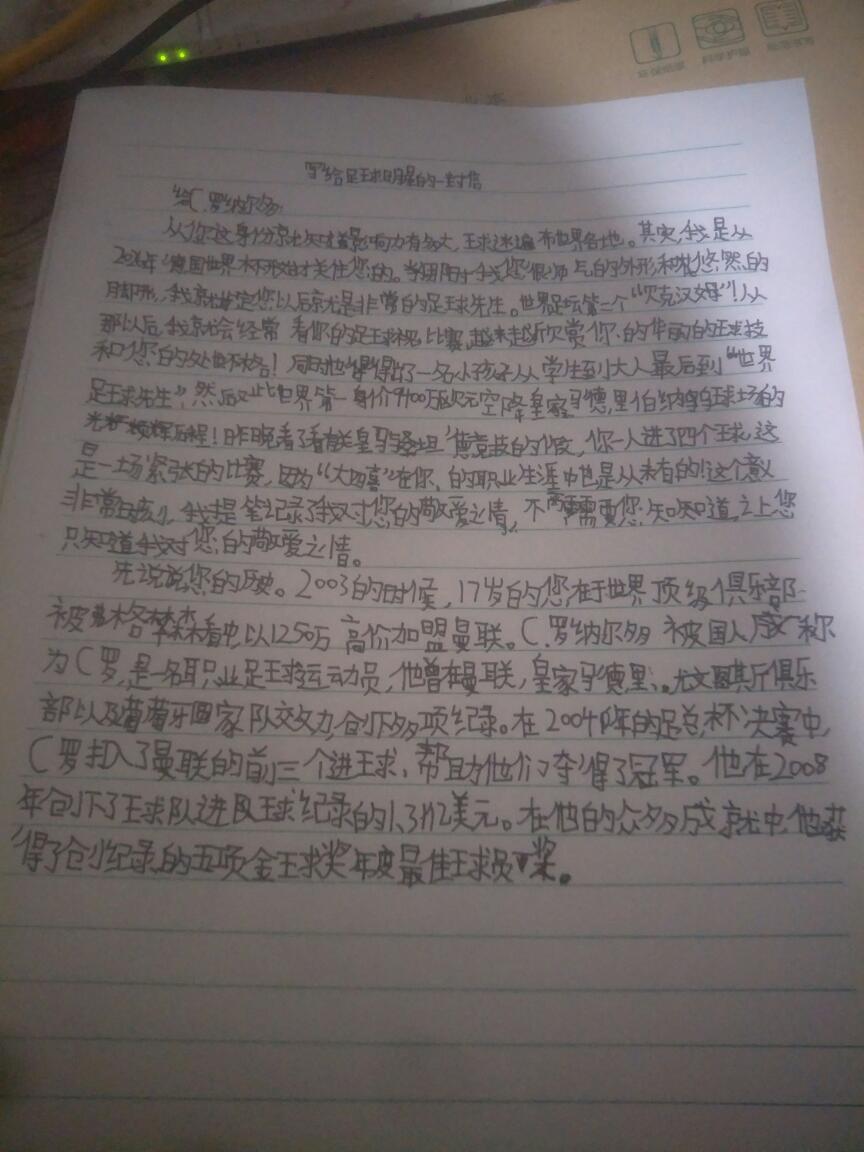 写给足球明星的一封信
给C.罗纳尔多:
从您这身份就知道影响力有多大,球迷遍布世界各地。其实,我是从
2006年德国世界杯开始才关注您的。当用您很帅气的外形和悠然的
脚形,我就肯定您以后就是非常的足球先生。世界足坛第二个“贝克汉姆”!从
那以后,我就会经常看你的足球视比赛,越来越欣赏你的华丽的球技
和您的处世风格!同时也得出了一名小孩子从学生到大人最后到“世界
足球先生”,然后以此世界第一身价9400万欧元空降皇家马德里伯纳乌球场的
光辉历程!昨晚看了有关皇马与德竞技的你一人进了四个球,这
是一场紧张的比赛,因为“大四喜”在你的职业生涯中也是从未有的!这个意义
非常深刻,我提笔记录了我对您的敬爱之情,不需要您知道,之上您
只知道我对您的敬爱之情。
先说说您的历史。2003的时候,17岁的您在于世界顶级俱乐部
被弗格森看中以1250万高价加盟曼联。C.罗纳尔多被国人称
为C罗,是一名职业足球运动员,他曾在曼联,皇家马德里、尤文图斯俱乐
部以及葡萄牙国家队效力,创下多项纪录。在2004年的足总杯决赛中,
C罗打入了曼联的前三个进球,帮助他们夺得了冠军。他在2008
年创下了球队进球纪录的1.3亿美元。在他的众多成就中,他获
得了创纪录的五项金球奖年度最佳球员奖。